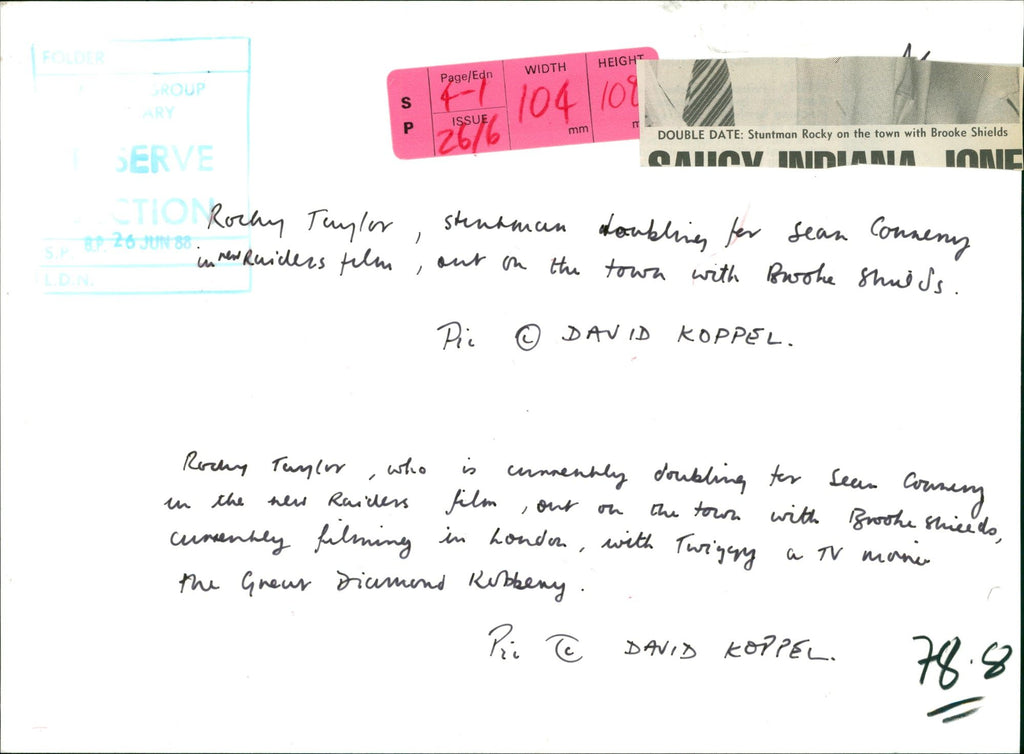 FOLDER
GROUP
ARY
SERVE
CTION
S.P. B.P. 26 JUN 88
L.D.N.
SP
Page/Edn
4-1
ISSUE
26/6
WIDTH
104
mm
HEIGHT
DOUBLE DATE: Stuntman Rocky on the town with Brooke Shields
SAUCY INDIANA JONE
Rocky Taylor, stuntman doubling for Sean Connery
in new Raiders film, out on the town with Brooke Shields.
Pic © DAVID KOPPEL.
Rocky Taylor, who is currently doubling for Sean Connery
in the new Raiders film, out on the town with Brooke Shields,
currently filming in London, with Twiggy a TV movie
the Great Diamond Robbery.
Pic © DAVID KOPPEL.
78.8